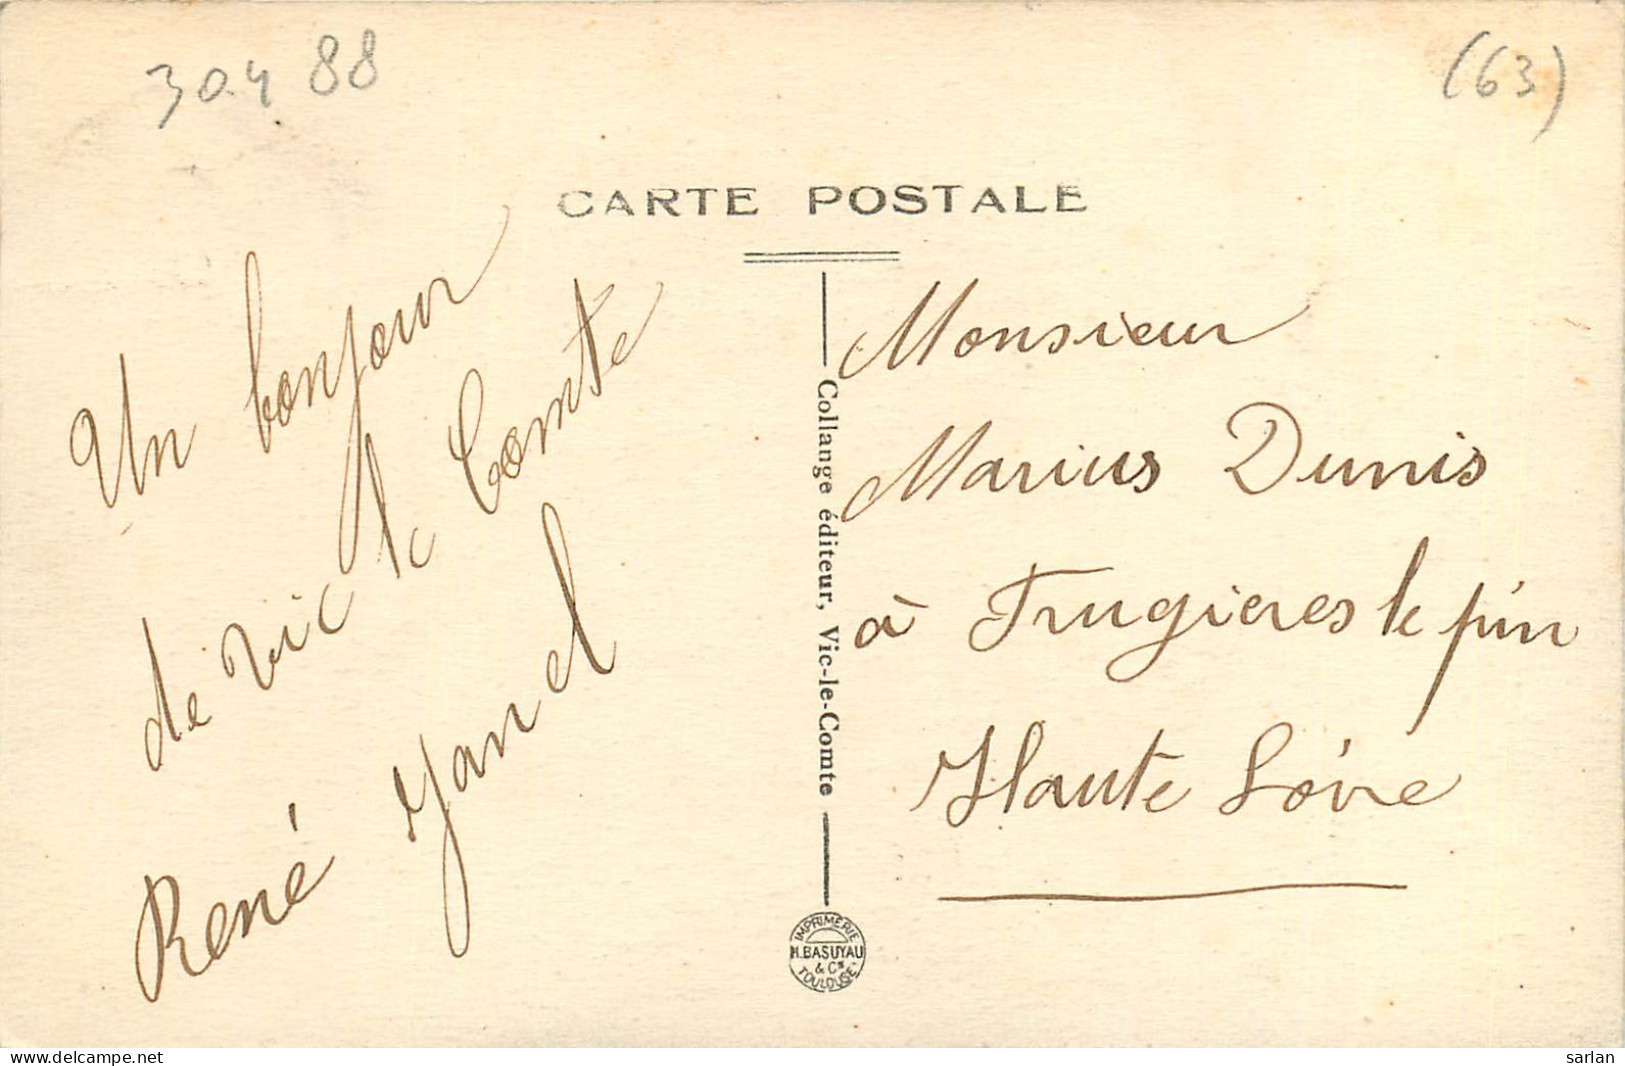 30.4 88
(63)
CARTE POSTALE
Un bonjour
de vic le Comte
René
Collange éditeur, Vic-le-Comte
Monsieur
Marius Dunis
à Frugieres le pin
Haute Loire
IMPRIMERIE
H. BASUYAU
& Cie
TOULOUSE
www.delcampe.net
sarlan